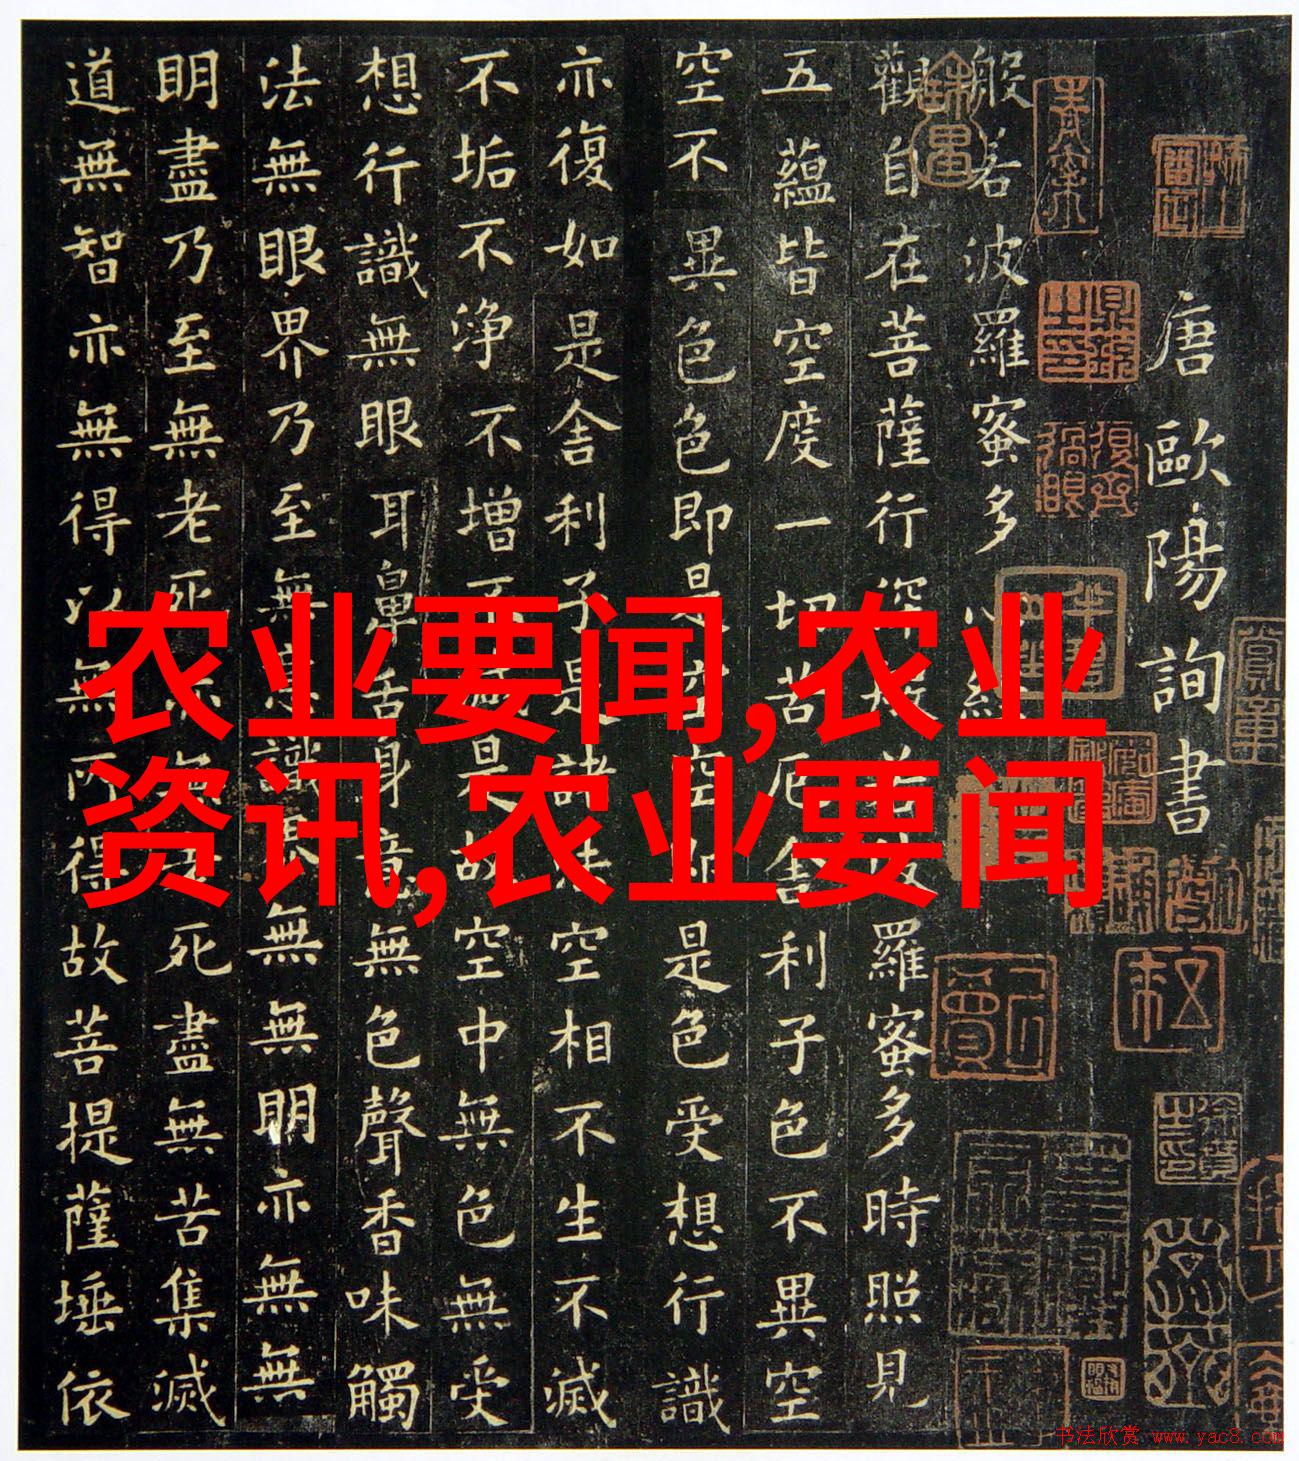 唐歐陽詢書
般若波羅蜜多心經
觀自在菩薩行深般若波羅蜜多時照見
五蘊皆空度一切苦厄舍利子色不異空
空不異色色即是空空即是色受想行識
亦復如是舍利子是諸法空相不生不滅
不垢不淨不增不減是故空中無色無受
想行識無眼耳鼻舌身意無色聲香味觸
法無眼界乃至無意識界無無明亦無無
明盡乃至無老死亦無老死盡無苦集滅
道無智亦無得以無所得故菩提薩埵依
农业要闻,农业
资讯,农业要闻
书法欣赏 www.yac8.com